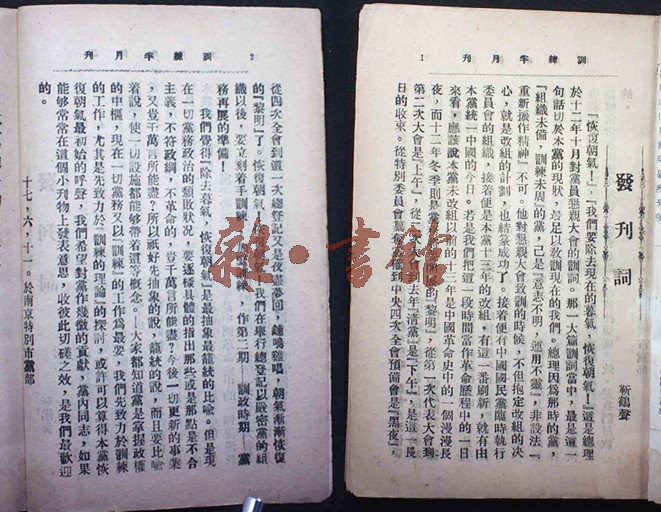 訓練半月刊
1
發刊詞
靳鶴聲
『恢復朝氣!』『我們要除去現在的暮氣,恢復朝氣!』這是總理
於十二年十月對黨員懇親大會的訓詞。那一大篇訓詞當中,最是這一
句話切於本黨的現狀,最足以教訓現在的我們。總理因爲那時的黨,
『組織未備,訓練未周』的黨,已是『意志不明,運用不靈』,非設法『
重新振作精神』不可。他對懇親大會致訓的時候,不但抱定改組的決
心,就是改組的計劃,也結篆成功了。接着便有中國國民黨臨時執行
委員會的組織,接着便是本黨十三年的改組,有這一番刷新,就有由
本黨統一中國的今日。若是我們把這一段時間當作革命歷程中的一日
來看,應該說本黨未改組以前的十二年是中國革命史中的一個漫漫長
夜,而十二年冬季則是黨
的『黎明』,從第一次代表大會到
第二次大會是『上午』,從二次大會到去年『清黨』是『下午』,是這一長
日的收束。從特別委員會
到中央四次全會預備會是『黑夜』,
訓練半月刊
2
從四次全會到這一次總登記又是夜
夢回,鐘鳴雞唱,朝氣漸漸恢復
的『黎明』了。恢復朝氣,
我們在舉行總登記以嚴密黨的組
織以後,要立刻着手訓練,
作第二期——訓政時期——黨
務再展的準備!
我們覺得『除去暮氣,恢復朝氣』是最抽象最籠統的比喻。但是現
在一切黨務政治的頹敗狀況,要逐樣具體的指出那些或是那點是不合
主義,不符政綱,不革命的,豈千萬言所能盡?今後一切更新的事業
,又豈千萬言所能盡?所以祇好先抽象的說,籠統的說,而且要比喻
着說,使一切設施都能够帶着這等概念。——大家都知道黨是掌握政權
的中樞,現在一切黨務又以『訓練』的工作爲最要,我們先致力於訓練
的工作,尤其是先致力於『訓練的理論』的探討,或許可以算得本黨恢
復朝氣最初始的呼聲,我們希望對黨作幾微的貢獻,黨內同志,如果
能够常常在這個小刊物上發表意思,收彼此切磋之效,是我們最歡迎
的。
十七·六·十一。於南京特別市黨部
新·書站